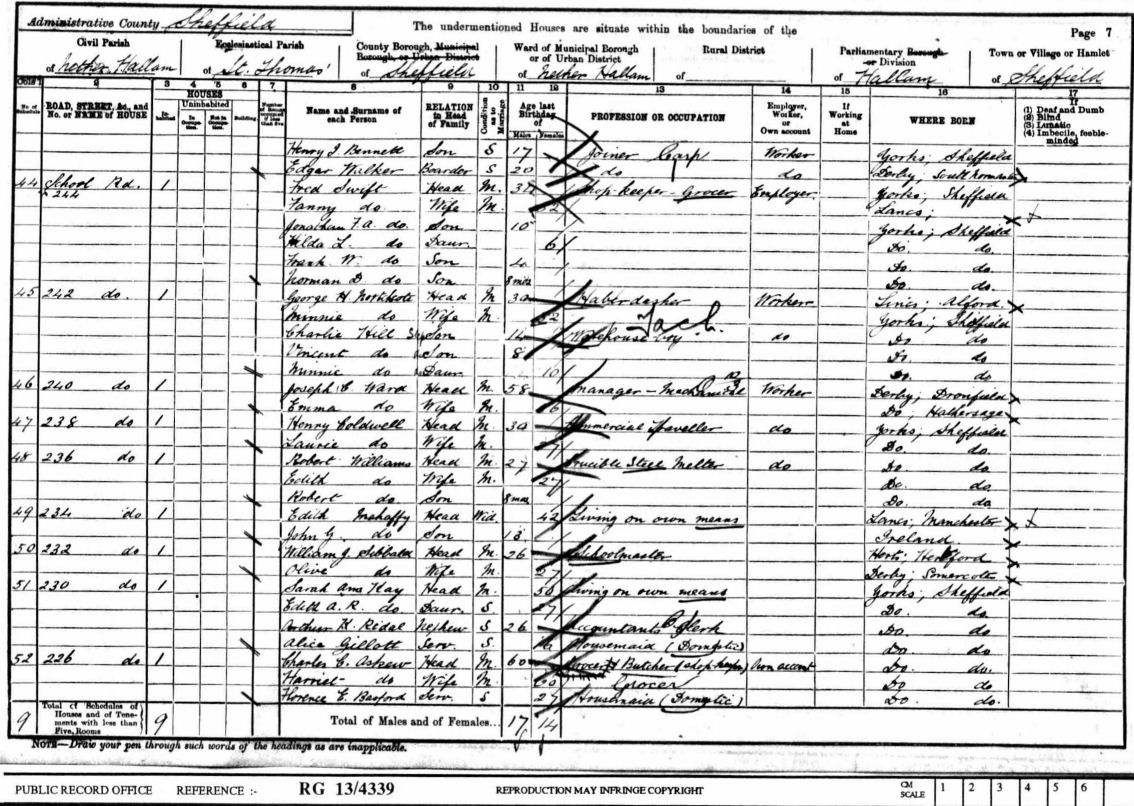 Administrative County Sheffield
The undermentioned Houses are situate within the boundaries of the
Page 7
Civil Parish of Nether Hallam
Ecclesiastical Parish of St. Thomas'
County Borough, Municipal Borough, or Urban District of Sheffield
Ward of Municipal Borough or of Urban District of Nether Hallam
Rural District of
Parliamentary Borough or Division of Hallam
Town or Village or Hamlet of Sheffield
Cols. 1 2 3 4 5 6 7 8 9 10 11 12 13 14 15 16 17
No. of Schedule
ROAD, STREET, &c., and No. or NAME of HOUSE
HOUSES
Inhabited
Uninhabited
In Occupation
Not in Occupation
Building
Number of Rooms occupied if less than five
Name and Surname of each Person
RELATION to Head of Family
Condition as to Marriage
Age last Birthday of
Males Females
PROFESSION OR OCCUPATION
Employer, Worker, or Own account
If Working at Home
WHERE BORN
If (1) Deaf and Dumb (2) Blind (3) Lunatic (4) Imbecile, feeble-minded
Henry J. Bennett Son S 17 Joiner Carp Worker Yorks; Sheffield
Edgar Walker Boarder S 20 do do Derby;
44 School Rd. 244 1 Fred Swift Head M. 37 Shop keeper - Grocer Employer Yorks; Sheffield
Fanny do. Wife M. 32 Lancs;
Jonathan F. A. do. Son 10 Yorks; Sheffield
Hilda L. do Daur. 6 Do. do.
Frank W. do Son 4 Do. do.
Norman D do Son 8 mos Do. do.
45 242 do. 1 George H Northcote Head M 30 Haberdasher Worker Lincs: Alford
Minnie do Wife M. 32 Yorks; Sheffield
Charlie Hill Son 14 Warehouse boy do Do do
Fach.
Vincent do Son 8 Do do
Minnie do Daur. 10 Do. do
46 240 do 1 Joseph C. Ward Head M. 58 Manager - Mechanical Worker Derby; Dronfield
Emma do Wife M. Do; Hathersage
47 238 do 1 Henry Coldwell Head M. 30 Commercial Traveller do Yorks; Sheffield
Laurie do Wife M. 27 Do. do
48 236 do 1 Robert Williams Head M. 27 Crucible Steel Melter do Do do
Edith do Wife M. 27 Do. do
Robert do Son 8 mos Do. do
49 234 do 1 Edith Mahaffy Head Wid. 42 Living on own means Lancs; Manchester
John G. do Son 13 Ireland
50 232 do 1 William J. Sibbald Head M 26 Schoolmaster Herts; Hertford
Olive do Wife M. 27 Derby; Somercotes
51 230 do 1 Sarah Ann Kay Head M. 50 Living on own means Yorks; Sheffield
Edith A. R. do Daur. S. 27 Do. do
Arthur H. Ridal Nephew S 26 Accountants Clerk Do. do
Alice Gillott Serv. S. Housemaid (Domestic) Do do
52 226 do 1 Charles C. Askew Head M. 60 Grocer & Butcher (shop keeper) Own account Do. do.
Harriet do Wife M. 60 Grocer Do do
Florence E. Basford Serv. S 27 Housemaid (Domestic) Do. do.
9 Total of Schedules of Houses and of Tenements with less than Five Rooms 9 Total of Males and of Females... 17 14
NOTE—Draw your pen through such words of the headings as are inapplicable.
PUBLIC RECORD OFFICE REFERENCE :- RG 13/4339 REPRODUCTION MAY INFRINGE COPYRIGHT CM SCALE 1 2 3 4 5 6